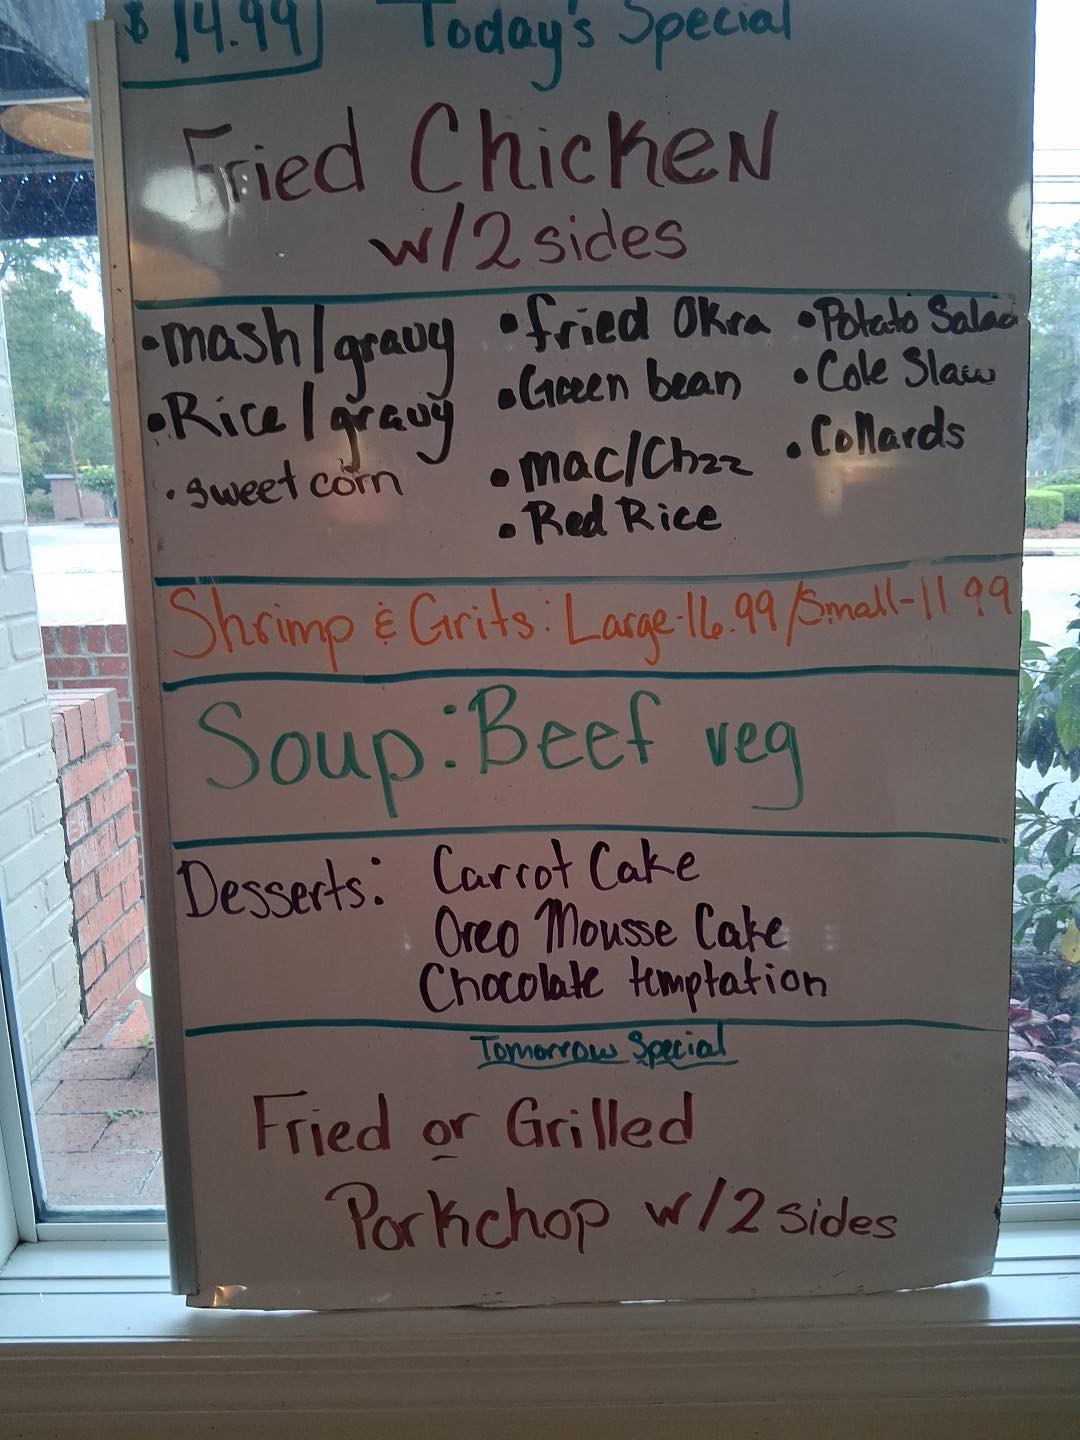 $14.99 Today's Special
Fried Chicken
w/2 sides
•mash/gravy
•Rice/gravy
•sweet corn
•fried Okra
•Green bean
•mac/Chzz
•Red Rice
•Potato Salad
•Cole Slaw
•Collards
Shrimp & Grits: Large-16.99/Small-11 99
Soup: Beef veg
Desserts: Carrot Cake
Oreo Mousse Cake
Chocolate temptation
Tomorrow Special
Fried or Grilled
Porkchop w/2 sides